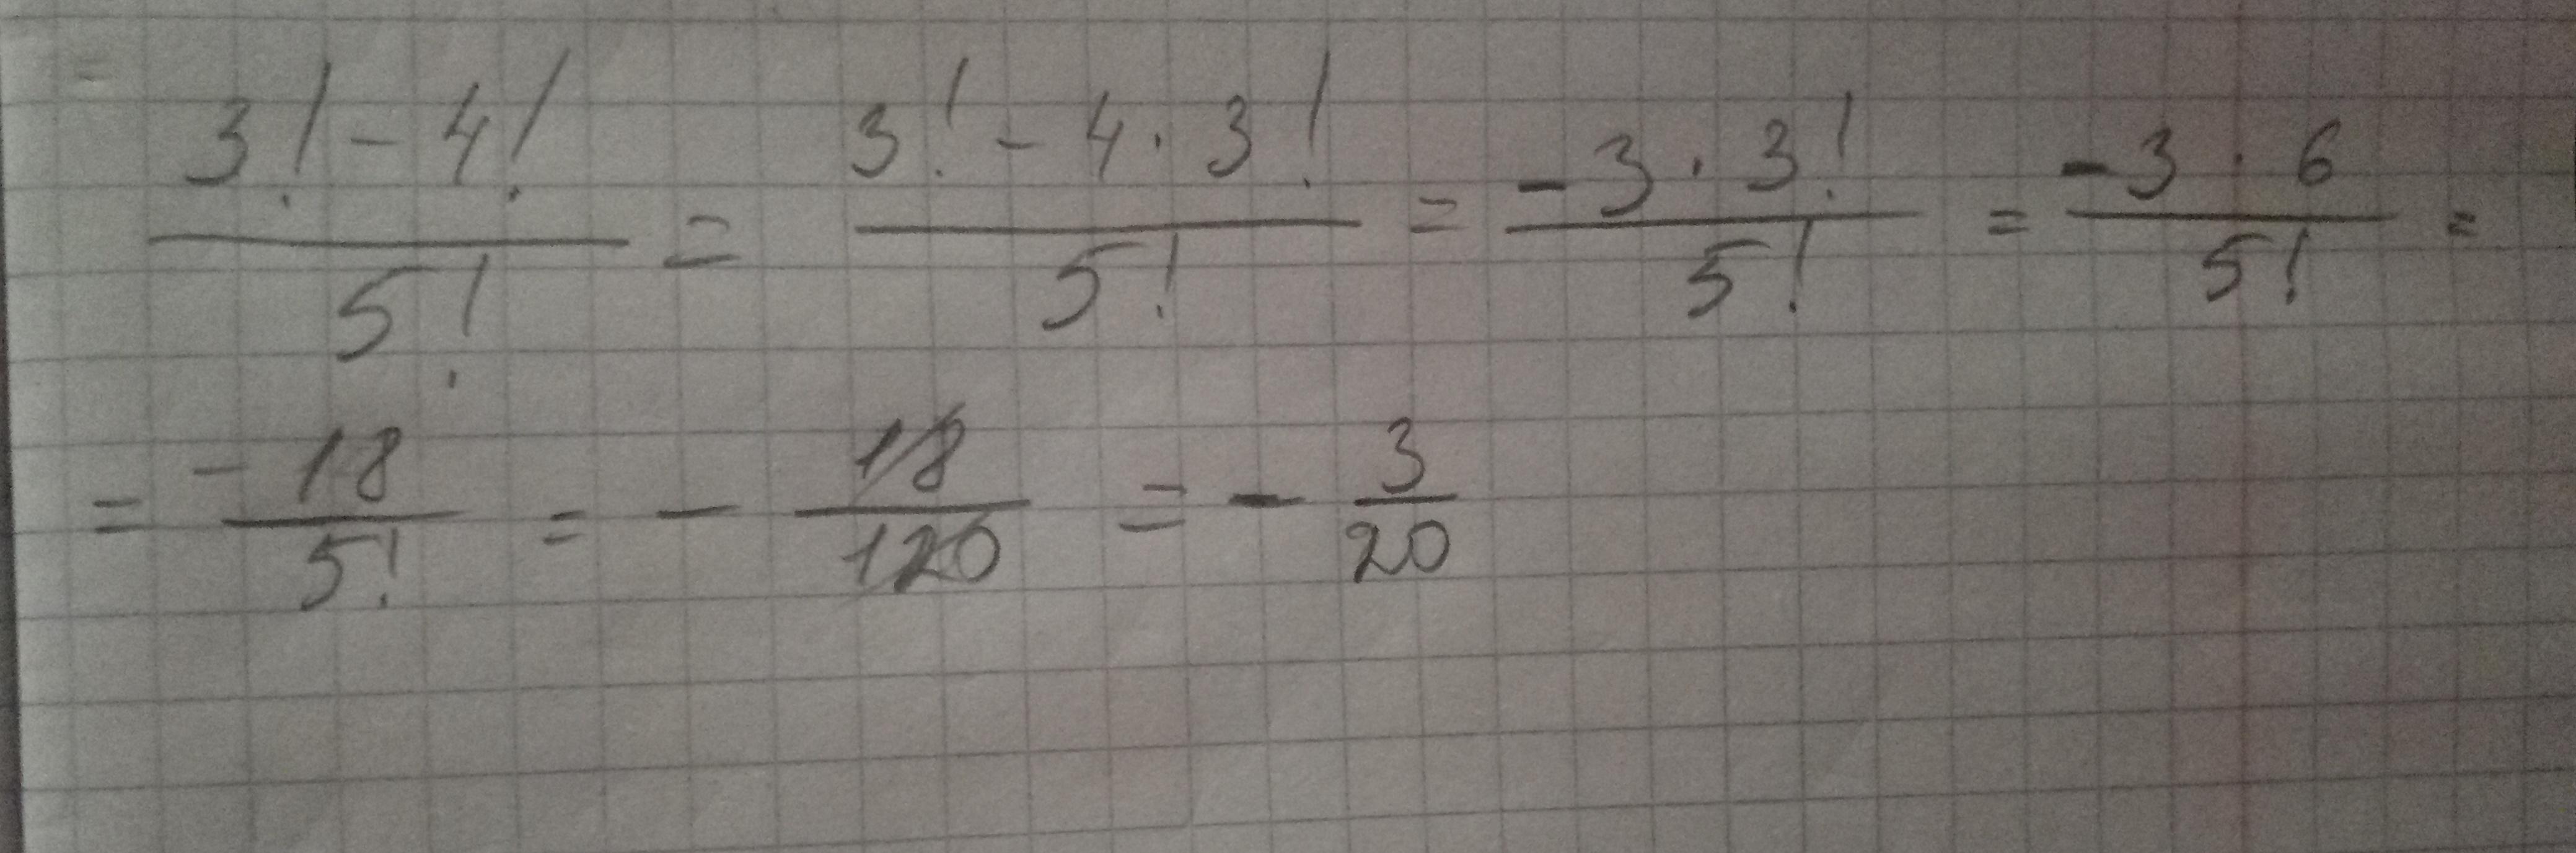 (3! - 4!)/5! = (3! - 4 · 3!)/5! = (-3 · 3!)/5! = (-3 · 6)/5! =
= (-18)/5! = - 18/120 = - 3/20